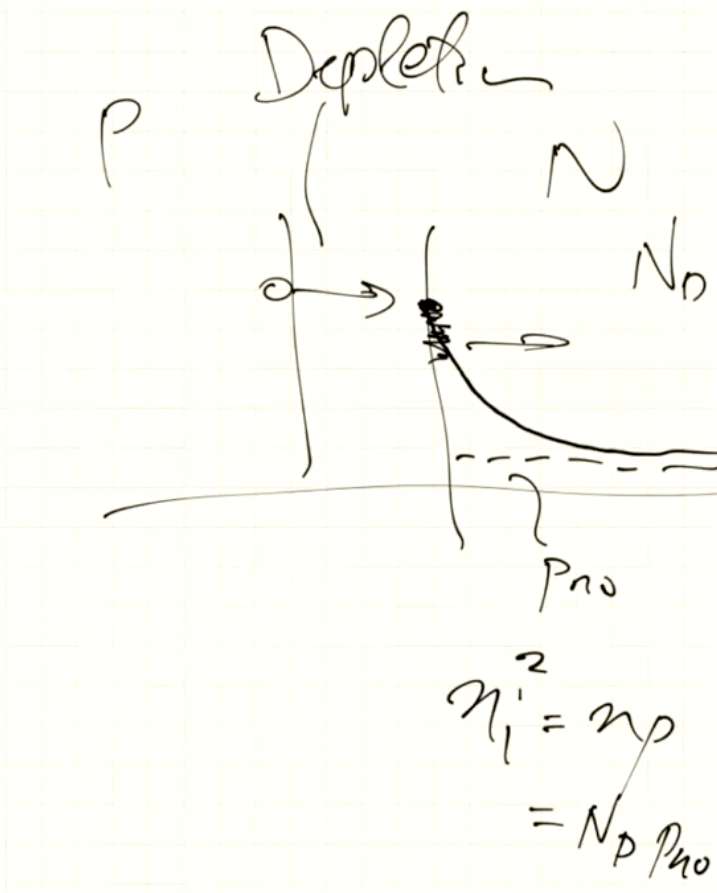 Depletion
P
N
N_D
p_no
n_i^2 = np
= N_D p_no